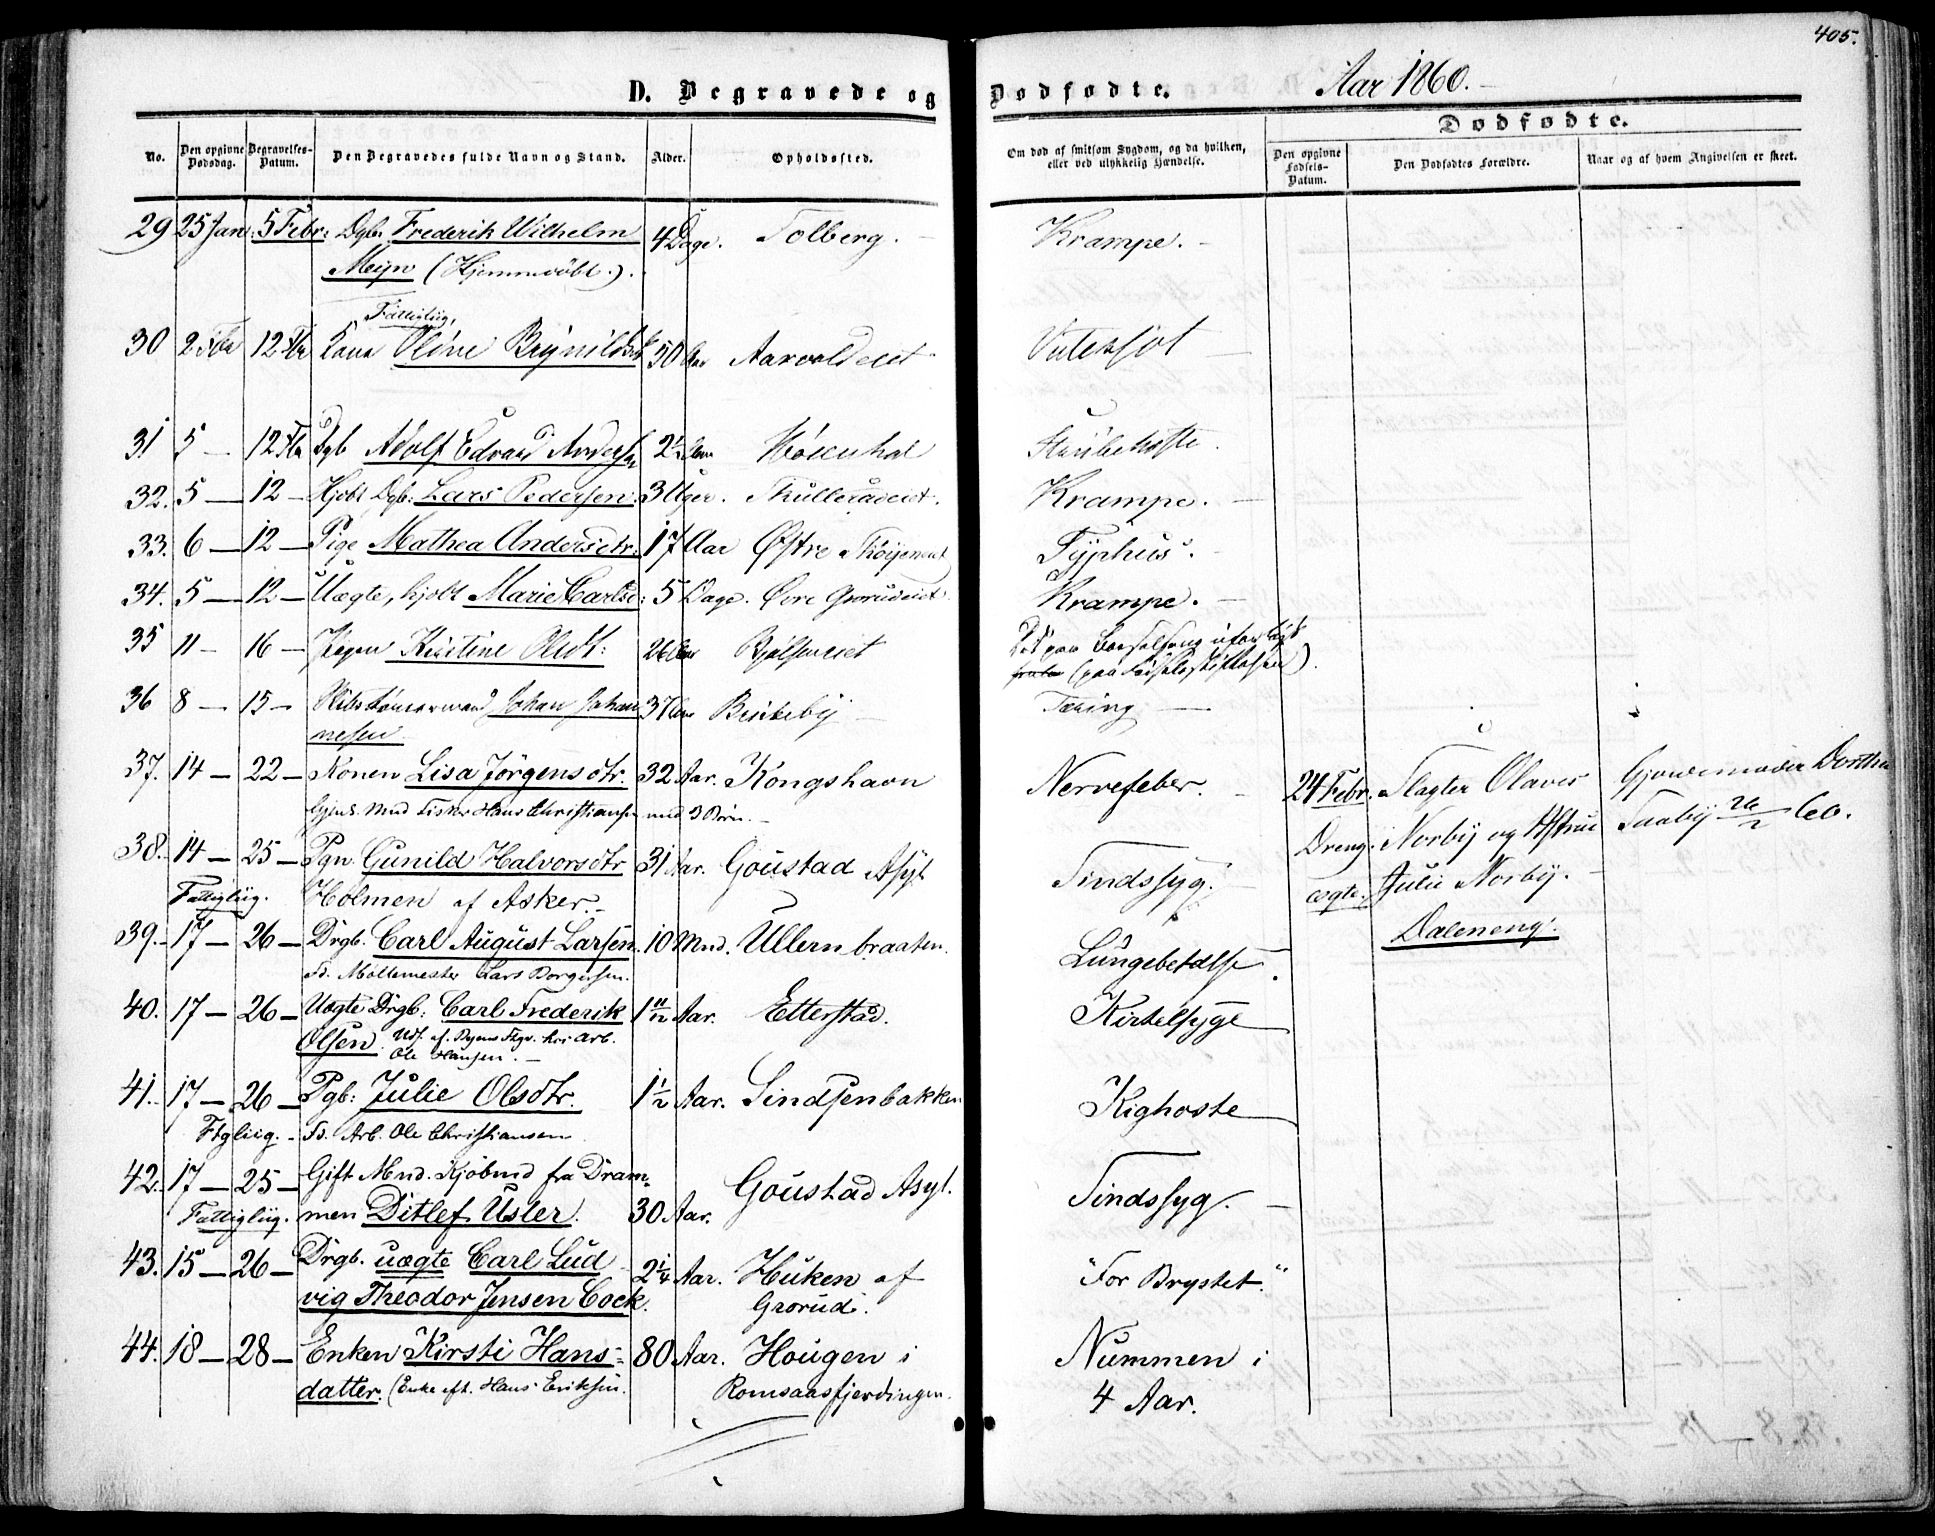 405.
D. Begravede og Dødfødte. Aar 1860.
Dødfødte.
No. Den opgivne Dødsdag. Begravelses-Datum. Den Begravedes fulde Navn og Stand. Alder. Opholdssted. Om død af smitsom Sygdom, og da hvilken, eller ved ulykkelig Hændelse. Den opgivne Fødsels-Datum. Den Dødfødtes Forældre. Naar og af hvem Angivelsen er skeet.
29 25 Jan: 5 Febr: Dgb. Frederik Wilhelm 4 Dage. Tolberg. Krampe.
Meyn (Hjemmedøbt.).
Fattiglig,
30 2 Febr 12 Febr Oline Brynildsd 50 Aar Aarvoldeiet
31 5 - 12 Febr Dgb Adolf Edvard Andersen 2½ Aar Strubehoste.
32. 5 - 12 - Hjdbt Dgb: Lars Pedersen. 3 Uger. Krampe.
33. 6 - 12 - Pige Mathea Andersdtr. 17 Aar Østre Thøyeneiet Typhus.
34. 5 - 12 - Uægte, hjdbt Marie Carlsd: 5 Dage. Øvre Gorudeiet. Krampe.
35 11 - 16 - Pigen Kristine Olsdt: 26 Aar Bjølseneiet Død paa
(paa Fødselsstiftelsen).
36 8 - 15 - Johan Johan 37 Aar Birkeby Tæring
nesen
37. 14 - 22 - Konen Lisa Jørgensdtr. 32 Aar. Kongshavn Nervefeber. 24 Febr. Slagter Olaves Gjordemoder Dorthea
Gjens. Mnd Fisker Hans Christiansen med 3 Børn. Dreng. Norby og Hstru Taaby 26/2 60.
38. 14 - 25 - Pgn. Gunild Halvorsdtr 31 Aar. Goustad Asyl Sindssyg. ægte. Julie Norby.
Fattiglig. Holmen af Asker.
Dæleneng.
39. 17 - 26 - Drgb. Carl August Larsen. 10 Mnd. Ullernbraaten. Lungebetdlse
Fs. Møllemester Lars Borgersen.
40. 17 - 26 - Uægte Drgb: Carl Frederik 1 11/12 Aar. Etterstad. Kirtelsyge
Olsen. Uds. af Byens Ftgv. hos Arb.
Ole Hansen.
41. 17 - 26 - Pgb: Julie Olsdtr. 1½ Aar. Sindsenbakken Kighoste
Ftglig. - Fs. Arb. Ole Christiansen
42. 17 - 25 - Gift Mnd. Kjøbmd fra Dram-
Fattiglig. men Ditlef Usler. 30 Aar. Goustad Asyl. Sindssyg.
43. 15 - 26 - Drgb. uægte Carl Lud 2¼ Aar. Huken af "For Brystet."
vig Theodor Jensen Cock. Grorud.
44. 18 - 28 - Enken Kirsti Hans- 80 Aar. Hougen i Nummen i
datter. (Enke eft. Hans Eriksen. Romsaasfjerdingen. 4 Aar.